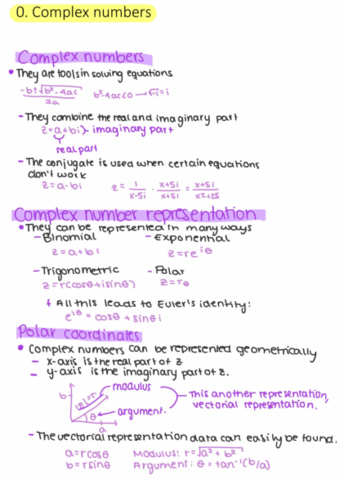 0. Complex numbers
Complex numbers
• They are tools in solving equations
-b±√b²-4ac / 2a   b²-4ac<0 → √-1=i
- They combine the real and imaginary part
z=a+bi } imaginary part
real part
- The conjugate is used when certain equations
don't work
z=a-bi   z= 1/x-5i · x+5i/x+5i = x+5i/x²+25
Complex number representation
• They can be represented in many ways
- Binomial   - Exponential
z=a+bi   z=re^iθ
- Trigonometric   - Polar
z=r(cosθ+isinθ)   z=r_θ
All this leads to Euler's identity:
e^iθ = cosθ + sinθi
Polar coordinates
• Complex numbers can be represented geometrically
- x-axis is the real part of z
- y-axis is the imaginary part of z.
modulus
b   |z|=r   This another representation,
vectorial representation.
θ   argument.
a
- The vectorial representation data can easily be found.
a=rcosθ   Modulus: r=√a²+b²
b=rsinθ   Argument: θ=tan⁻¹(b/a)